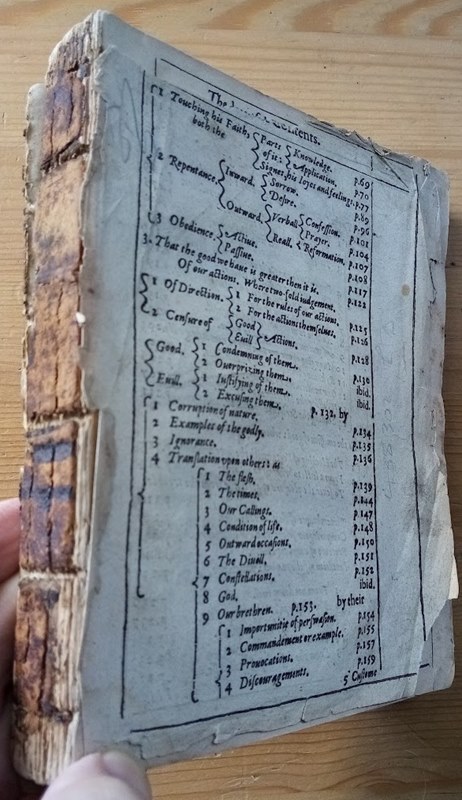 The Contents.
1 Touching his Faith, Parts Knowledge. p.69
both the of it: Application. p.70
Signes, his ioyes and feelings. p.77
2 Repentance, Inward. Sorrow. p.89
Deſire. p.96
Outward. Verball Confeſſion. p.101
Prayer. p.104
Reall. Reformation. p.107
3 Obedience. Actiue. p.108
Paſſiue. p.117
3. That the good we haue is greater then it is. p.121
Of our actions, Where two-fold iudgement,
1 Of Direction. 1 For the rules of our actions. p.125
2 For the actions themſelues. p.126
2 Cenſure of Good Euill Actions. p.128
Good. 1 Condemning of them. p.130
2 Ouerprizing them. ibid.
Euill. 1 Iuſtifying of them. ibid.
2 Excuſing them. p.132. by
1 Corruption of nature. p.134
2 Examples of the godly. p.135
3 Ignorance. p.136
4 Tranſlation vpon others: as
1 The fleſh. p.139
2 The times. p.144
3 Our Callings. p.147
4 Condition of life. p.148
5 Outward occaſions. p.150
6 The Diuell. p.151
7 Conſtellations. p.152
8 God. ibid.
9 Our brethren. p.153. by their
1 Importunitie of perſwaſion. p.154
2 Commandement or example. p.155
3 Prouocations. p.157
4 Diſcouragements. p.159
5 Cuſtome